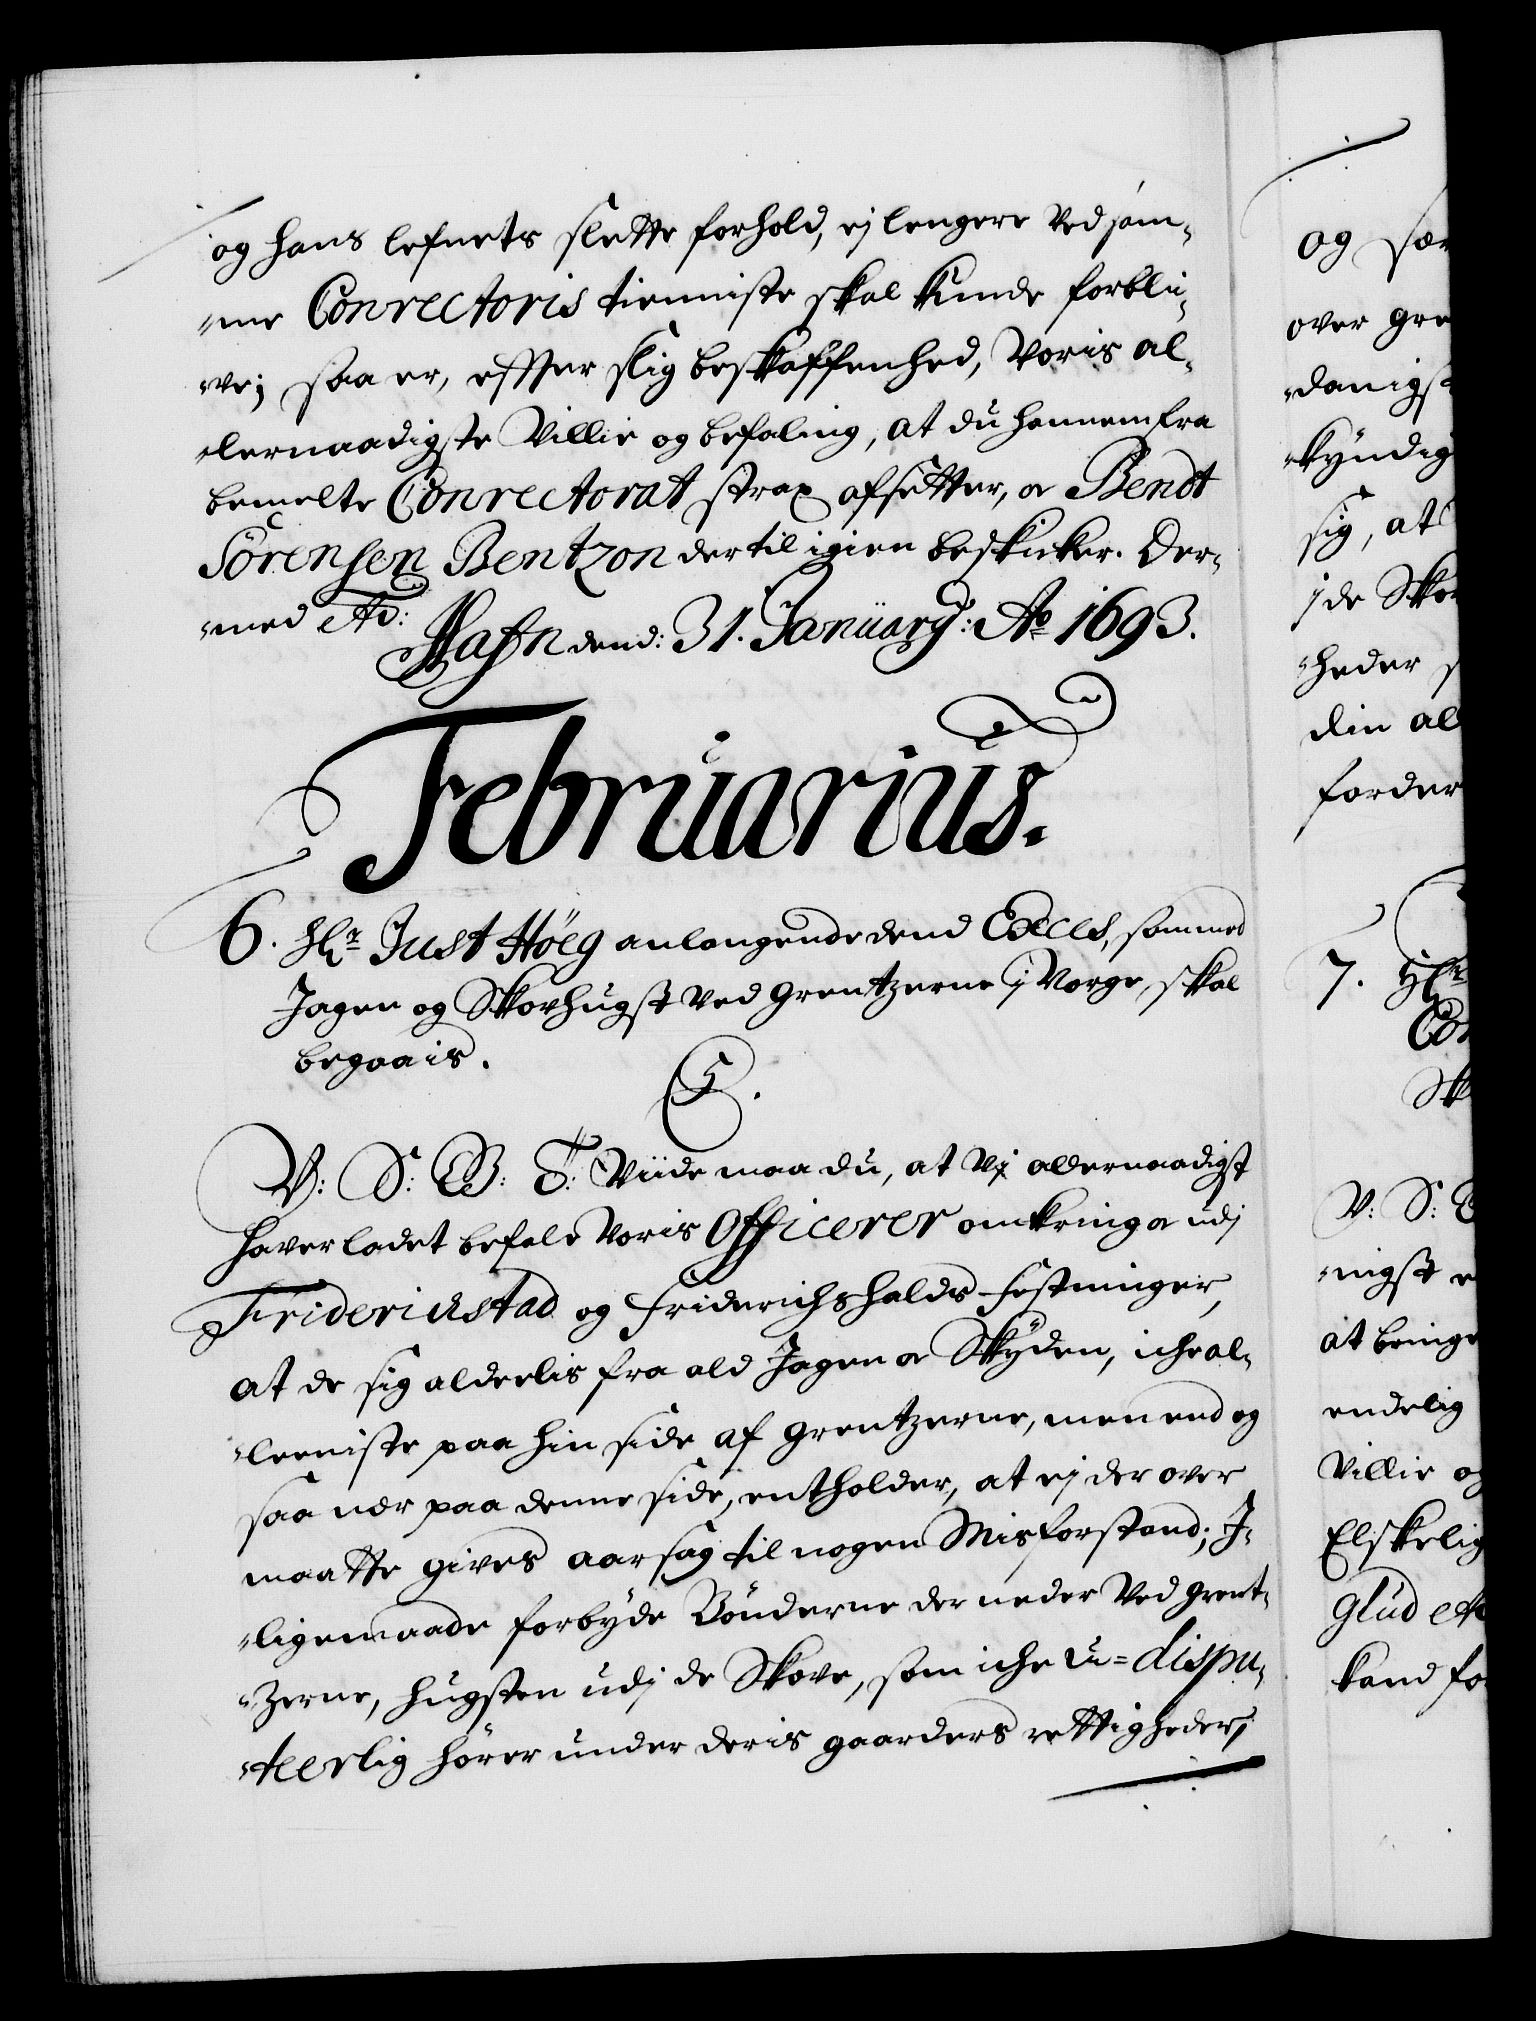 og hans lefnets slette forhold, ej lengere ved sam-
-me Conrectoris tienniste skal kunde forbli-
-ve; saa er, efter slig beskaffenhed, Voris al-
-lernaadigste Villie og befaling, at du hannem fra
bemelte Conrectorat strax afsetter, oc Bendt
Sörensen Bentzon dertil igien beskicker. Der-
-med etc:
Hafn dend: 31. Januarij: Ao 1693.
Februarius.
6. Hr Just Höeg anlangende dend Exces, som med
Jagen og Skovhugst ved Grentzerne j Norge, skal
begaais.
C5.
V: S: G: T: Viide maa du, at Vj allernaadigst
haver ladet befale voris Officerer omkring oc udj
Friderichstad og Friderichshalds Festninger,
at de sig alderlis fra ald Jagen oc Skyden, iche al-
-leeniste paa hin side af Grentzerne, men end og
saa nær paa denne side, entholder, at ej der over
maatte gives aarsag til nogen Misforstand; J-
-ligemaade forbyde Bönderne der neder ved Grent-
-zerne, hugsten udj de Skove, som iche u-dispu-
-teerlig hörer under deris gaarders rettigheder,
og
over
-danigst
-kyndig
sig, at
j de
-heder
din al
forder
7. Hr
V: S:
-nigst
at
endelig
Villie og
Elskelig
Glud etc
kand